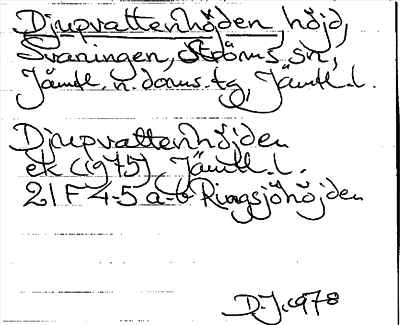 Djupvattenhöjden, höjd,
Svaningen, Ströms sn,
Jämtl. n. doms. tg, Jämtl. l.
Djupvattenhöjden
ek (1975) Jämtl. l.
21F 4-5 a-b Ringsjöhöjden
D.J. 1978